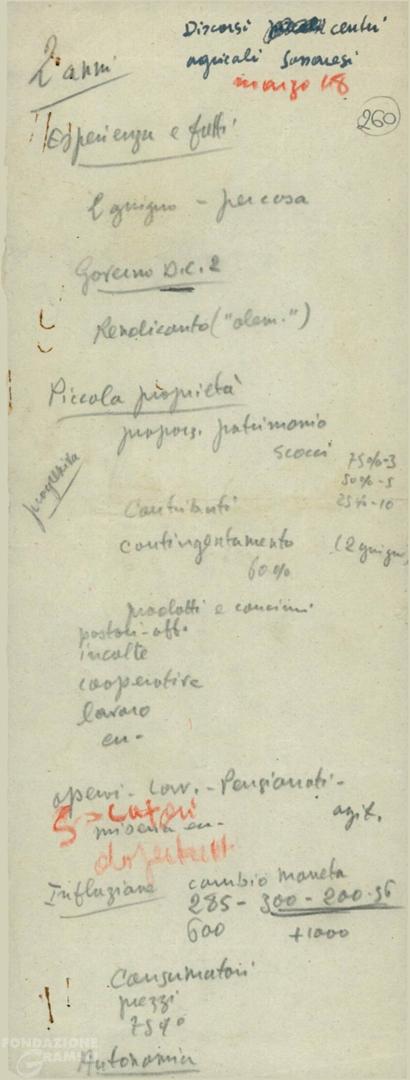 Discorsi centri
agricoli Sassaresi
marzo 48
2 anni
260
Esperienza e frutti
2 giugno - per cosa
Governo D.C. 2
Rendiconto ("elem.")
Piccola proprietà
propors. patrimonio
scocci
75%-3
50%-5
25%-10
progressiva
Contributi
contingentamento (2 giugno)
60%
prodotti e concimi
pastori-aff.
incolte
cooperative
lavoro
en-
operai - Lav. - Pensionati -
agit.
miseria en-
Inflazione cambio moneta
285 - 300 - 200.56
600 +1000
Consumatori
prezzi
75%
Autonomia
FONDAZIONE
GRAMSCI